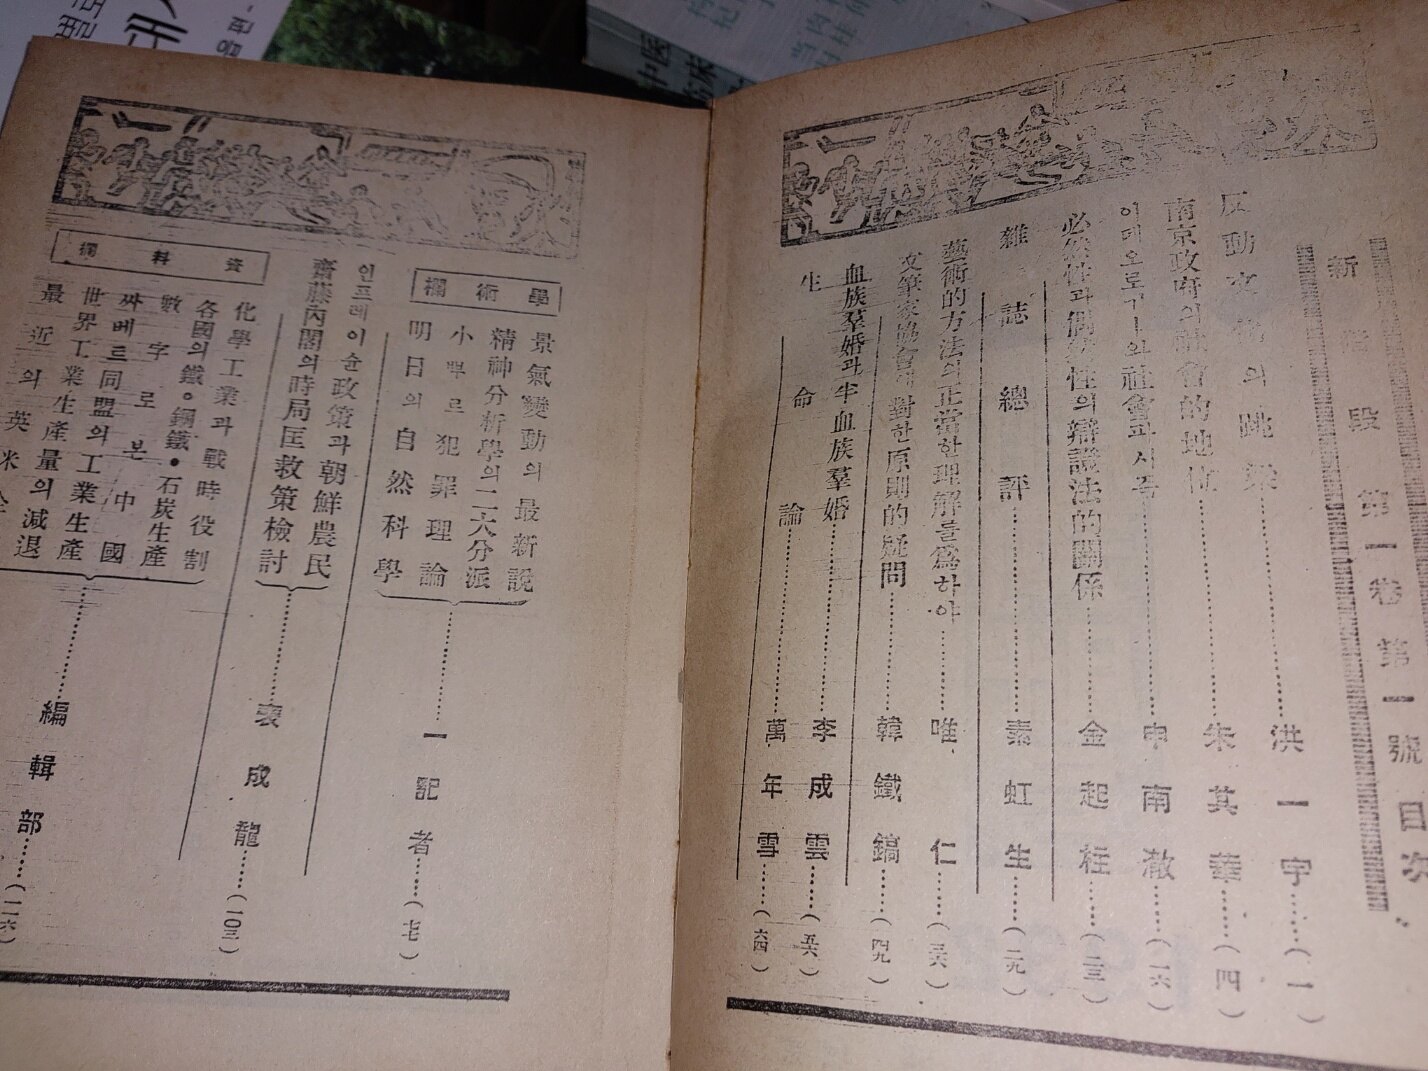 新階段 第一卷 第一號 目次
反動文化의 跳梁……洪一宇……(一)
南京政府의 社會的地位……朱其華……(四)
이데오로기ー와 社會과시즘……申南澈……(一六)
必然性과 偶然性의 辯證法的關係……金起柱……(二三)
雜誌總評……素虹生……(二九)
藝術的方法의 正當한 理解를 爲하야……唯仁……(三六)
文筆家協會에 對한 原則的疑問……韓鐵鎬……(四九)
血族羣婚과 半血族羣婚……李成雲……(五六)
生命論……萬年雪……(六四)
學術欄
景氣變動의 最新說
精神分析學의 二大分派
小뿌르 犯罪理論
明日의 自然科學
……一記者……(七七)
인프레이슌政策과 朝鮮農民
齋藤內閣의 時局匡救策檢討
……裵成龍……(一〇三)
資料欄
化學工業과 戰時役割
各國의 鐵•鋼鐵•石炭生產
數字로 본 中國
싸베르同盟의 工業生產
世界工業生產量의 減退
最近의 英米
……編輯部……(一二六)